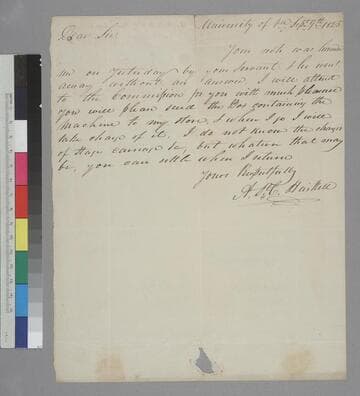 University of Va. Sept 9th 1825
Dear Sir
Your note was handed
me on Yesterday by your servant & he went
away without an answer. I will attend
to the Commission for you with much pleasure
you will please send the Box containing the
machine to my store, & when I go I will
take charge of it. I do not know the charges
of Stage carriage &c, but whatever that may
be, you can settle when I return
Yours Respectfully
Raskell